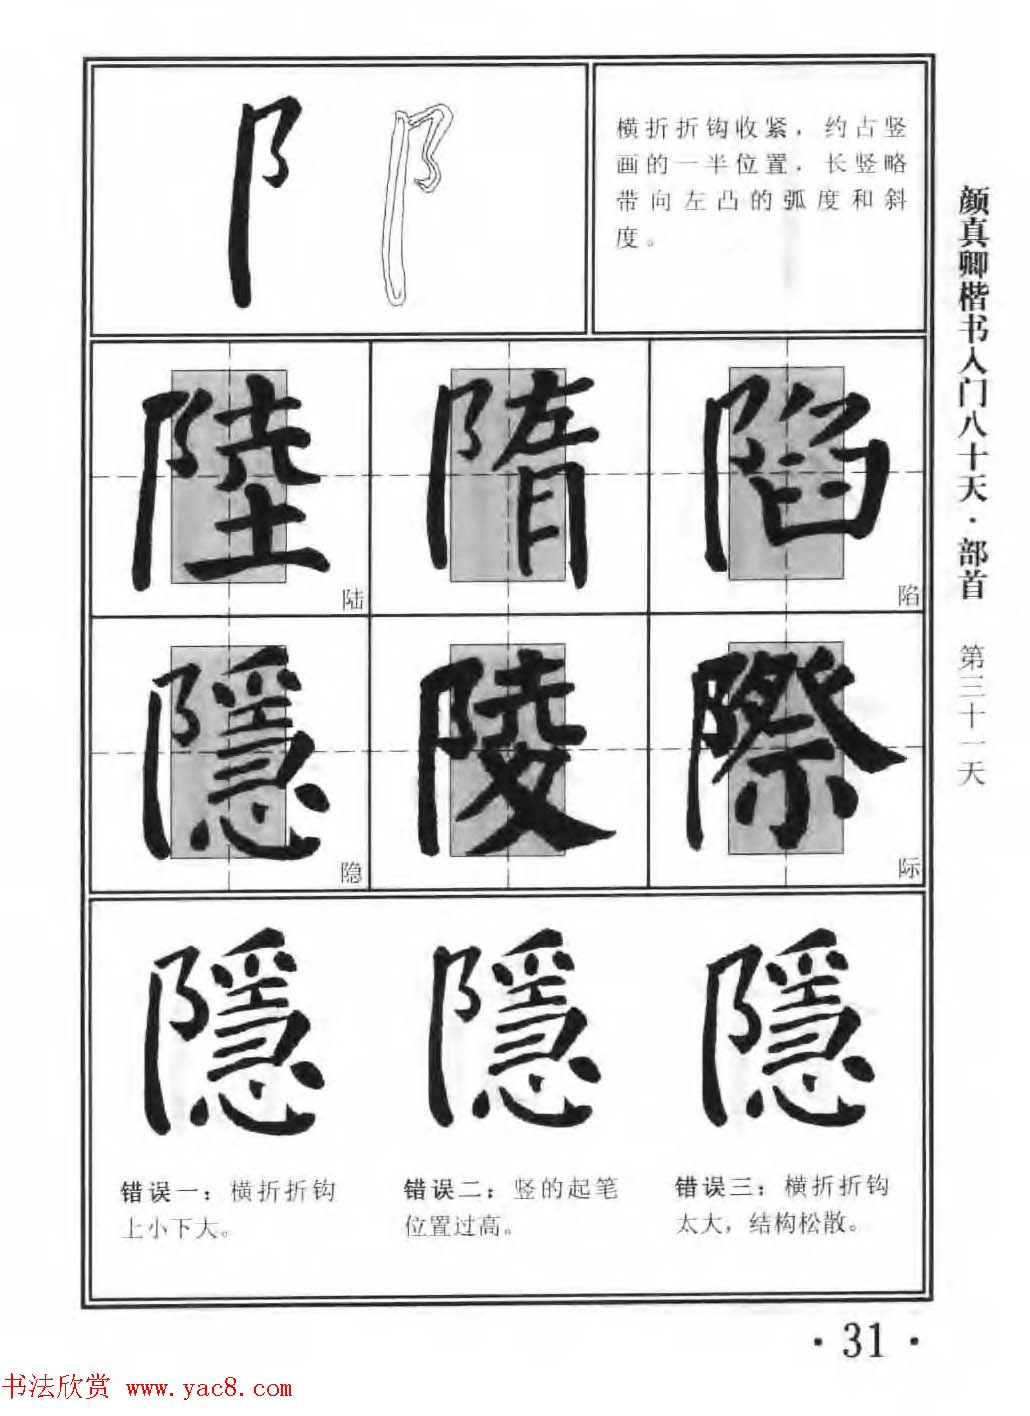 阝
横折折钩收紧，约占竖
画的一半位置，长竖略
带向左凸的弧度和斜
度。
颜真卿楷书入门八十天·部首 第三十一天
陸 隋 陷
陆 陷
隱 陵 際
隐 际
隱 隱 隱
错误一：横折折钩
上小下大。
错误二：竖的起笔
位置过高。
错误三：横折折钩
太大，结构松散。
·31·
书法欣赏 www.yac8.com